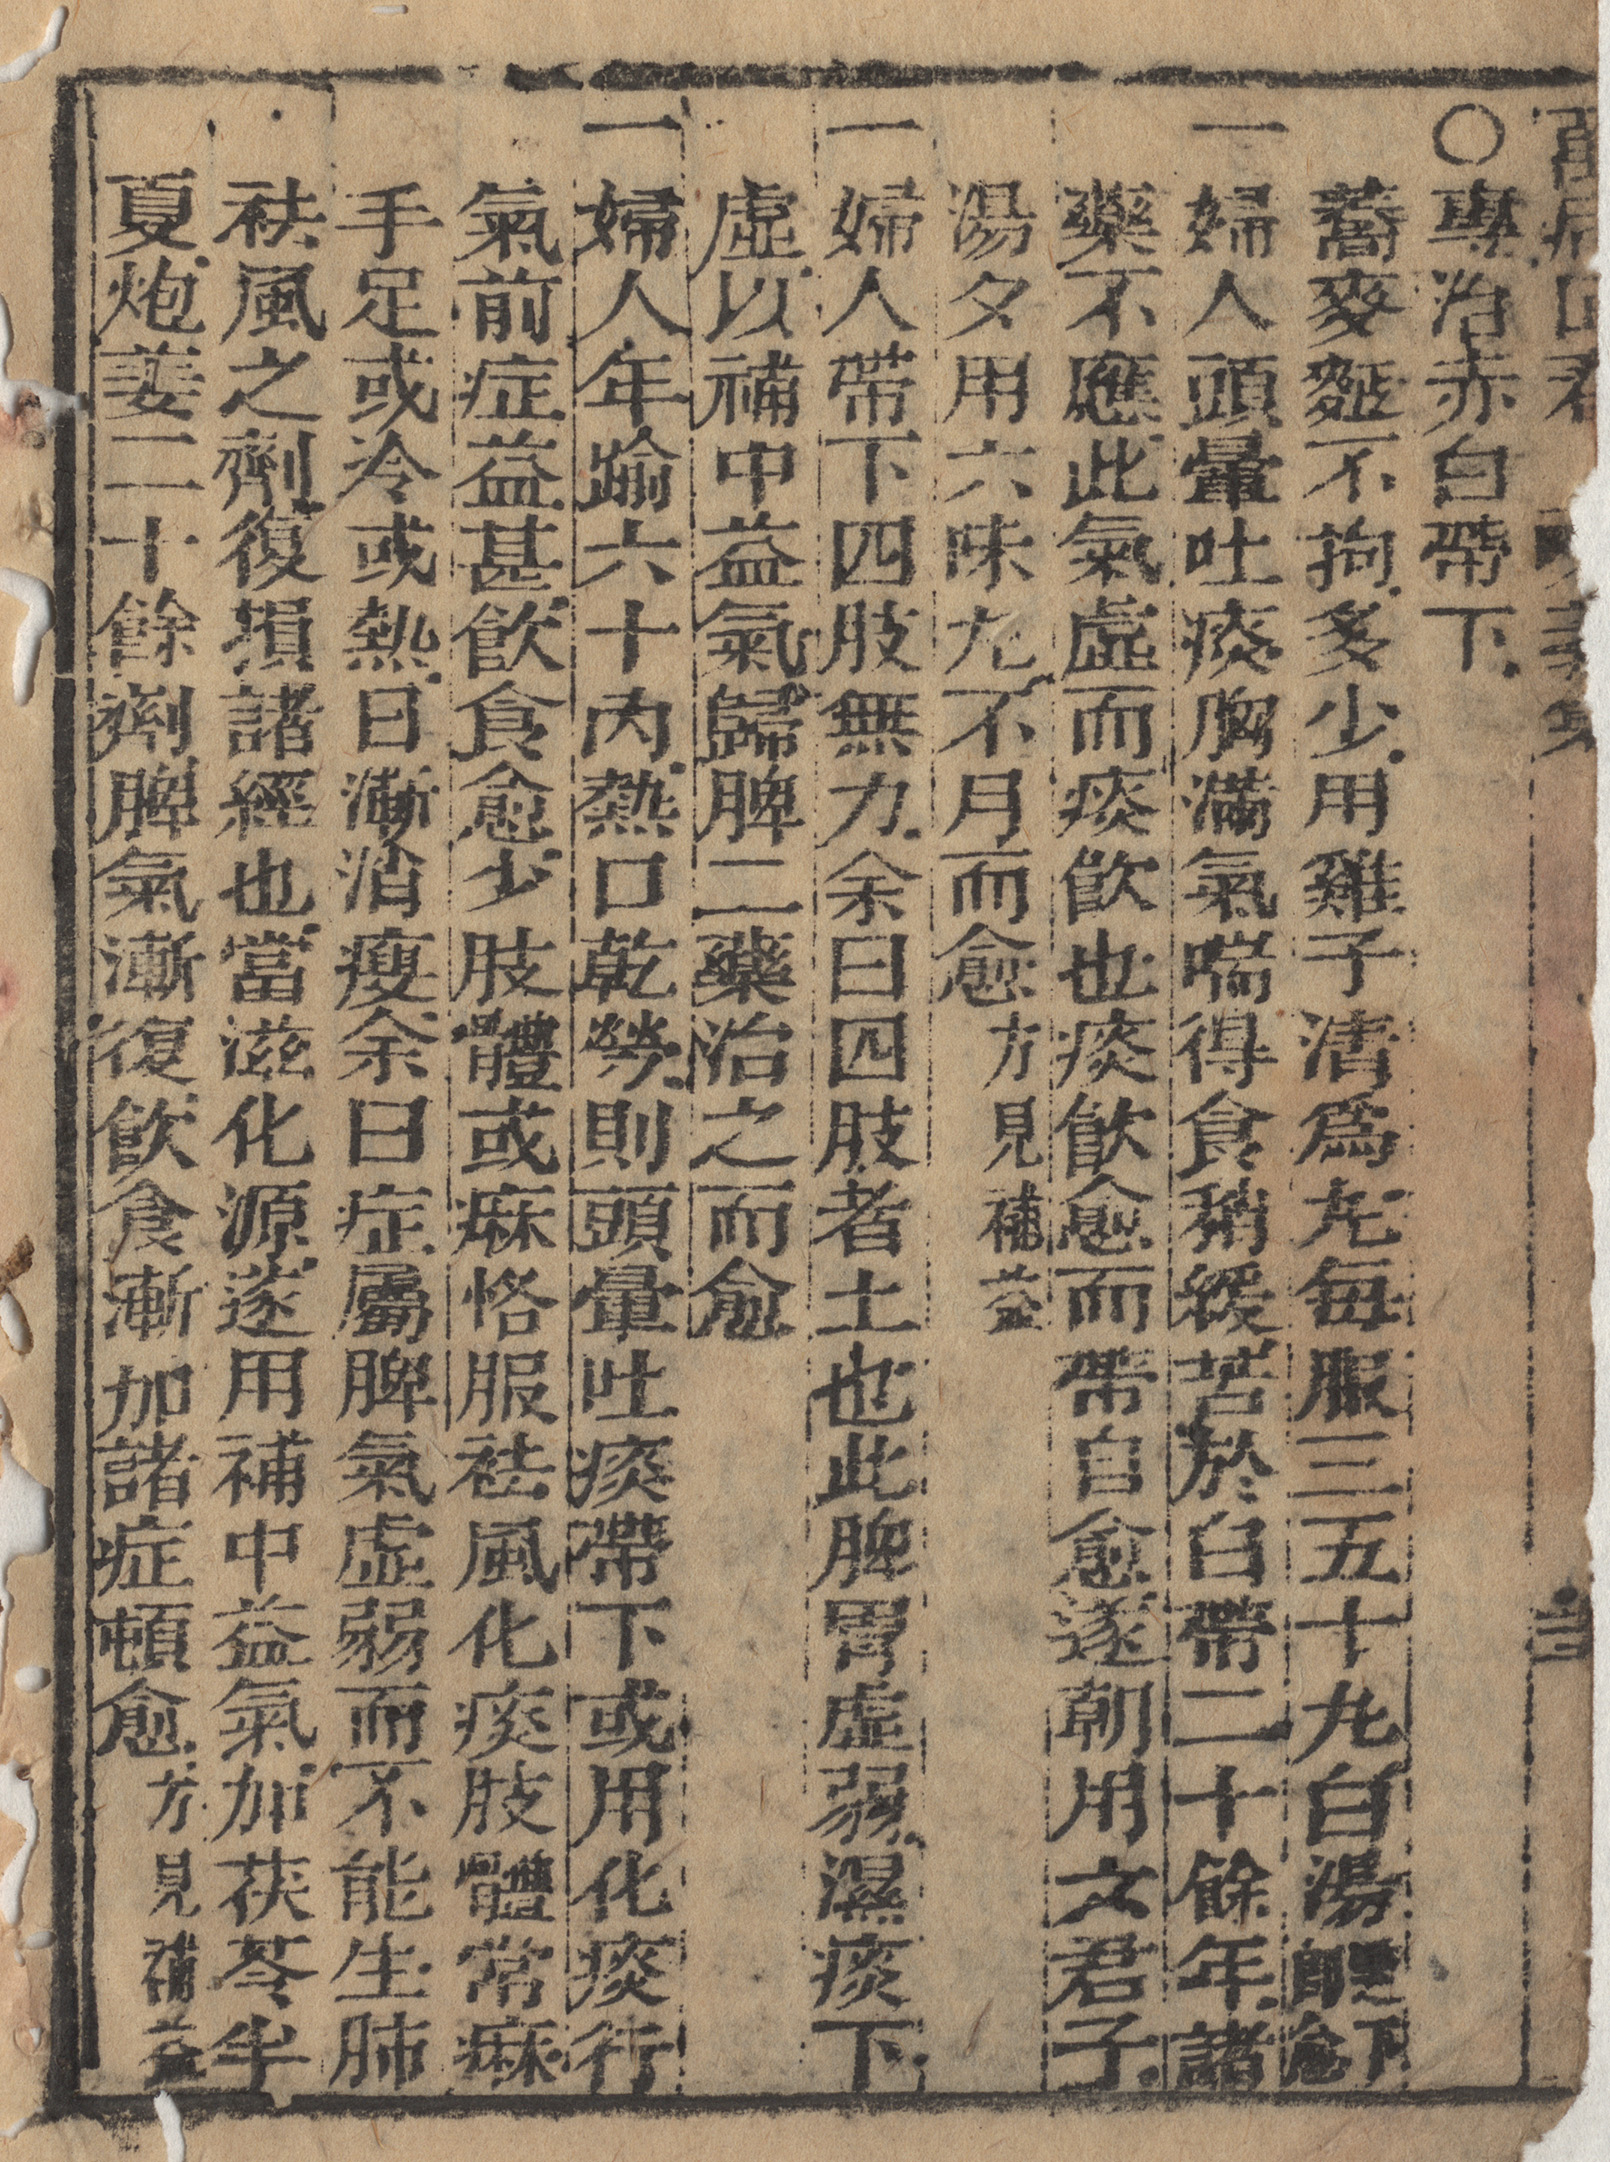 萬病回春
○專治赤白帶下
蕎麥麵不拘多少用雞子清為丸每服三五十丸白湯醒下即愈
一婦人頭暈吐痰胸滿氣喘得食稍緩苦於白帶二十餘年諸
藥不應此氣虛而痰飲也痰飲愈而帶自愈遂朝用六君子
湯夕用六味丸不月而愈方見補益
一婦人帶下四肢無力余曰四肢者土也此脾胃虛弱濕痰下
虛以補中益氣歸脾二藥治之而愈
一婦人年踰六十內熱口乾勞則頭暈吐痰帶下或用化痰行
氣前症益甚飲食愈少肢體或麻恪服祛風化痰肢體常麻
手足或冷或熱日漸消瘦余曰症屬脾氣虛弱而不能生肺
祛風之劑復損諸經也當滋化源遂用補中益氣加茯苓半
夏炮姜二十餘劑脾氣漸復飲食漸加諸症頓愈方見補益